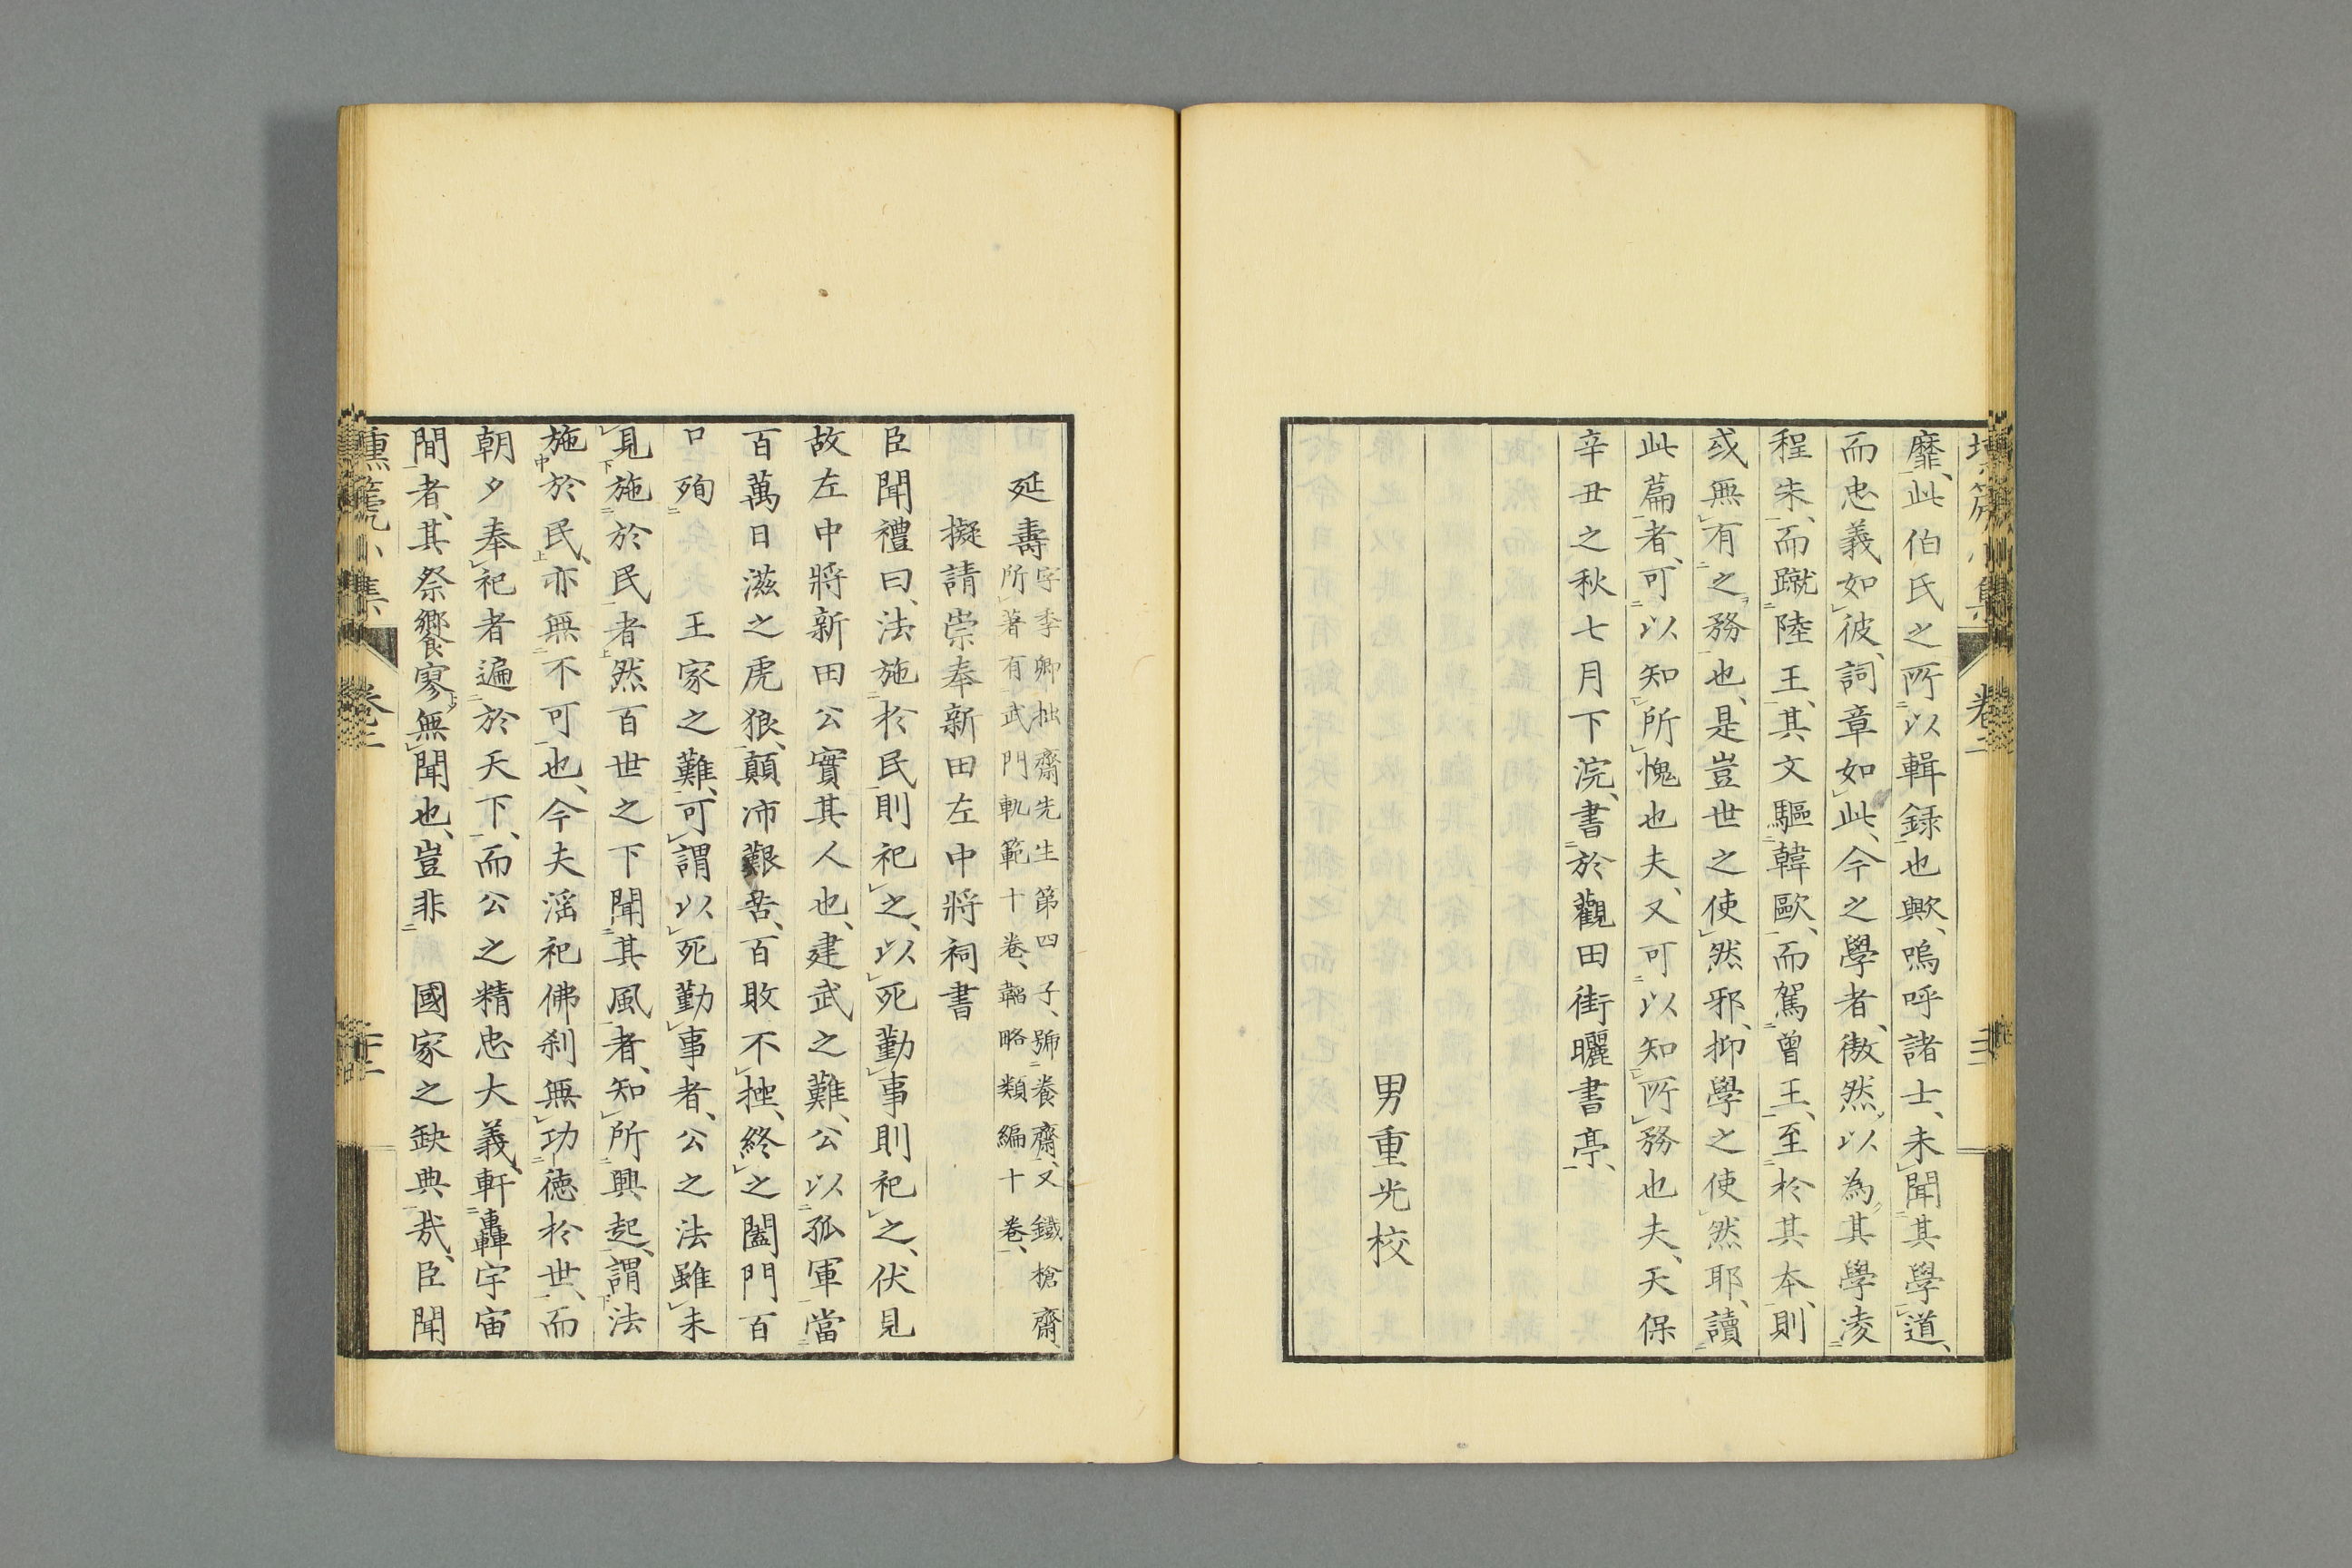 靡、此伯氏之所以輯録也歟、嗚呼諸士、未聞其學道、
而忠義如彼、詞章如此、今之學者、傲然以為其學凌
程朱、而蹴陸王、其文驅韓歐、而駕曾王、至於其本、則
或無有之務也、是豈世之使然邪、抑學之使然耶、讀
此篇者、可以知所愧也夫、又可以知所務也夫、天保
辛丑之秋七月下浣、書於觀田街曬書亭、
男重光校
延壽
字季卿拙齋先生第四子、號養齋、又鐵槍齋、
所著有武門軌範十卷、韜略類編十卷、
擬請崇奉新田左中將祠書
臣聞禮曰、法施於民則祀之、以死勤事則祀之、伏見
故左中將新田公實其人也、建武之難、公以孤軍當
百萬日滋之虎狼、顛沛艱苦、百敗不挫、終之闔門百
口殉　王家之難、可謂以死勤事者、公之法雖未
見施於民者然百世之下聞其風者、知所興起、謂法
施於民、亦無不可也、今夫滛祀佛刹無功德於世、而
朝夕奉祀者遍於天下、而公之精忠大義、軒轟宇宙
間者、其祭饗寥無聞也、豈非　國家之缺典哉、臣聞